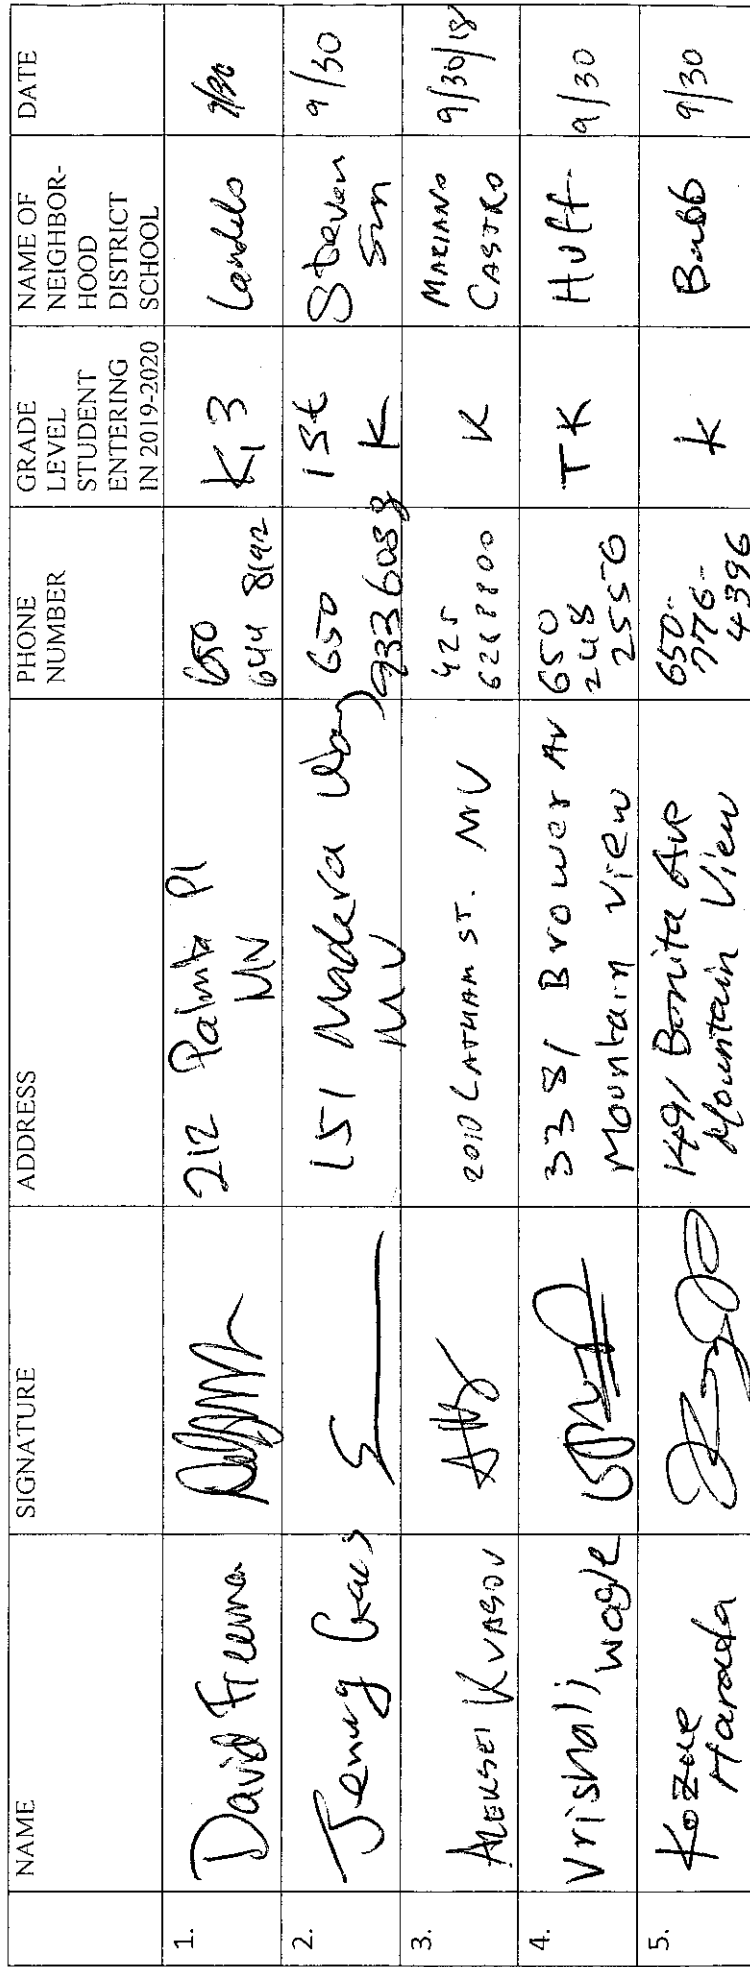 NAME
SIGNATURE
ADDRESS
PHONE
NUMBER
GRADE
LEVEL
STUDENT
ENTERING
IN 2019-2020
NAME OF
NEIGHBOR-
HOOD
DISTRICT
SCHOOL
DATE
1.
David
212 Palmita Pl
MV
650
644 8192
K, 3
Landels
9/30
2.
Jenny
151 Madera Way
MV
650
933 6038
1st
K
Steven
9/30
3.
ALEKSEI KVASOV
2010 LATHAM ST. MV
425
6268800
K
MARIANO
CASTRO
9/30/18
4.
Vrishali
Wagle
3381 Brower Av
Mountain View
650
248
2550
TK
Huff
9/30
5.
Kozue
Harada
1491 Bonita Ave
Mountain View
650-
776-
4396
K
Bubb
9/30